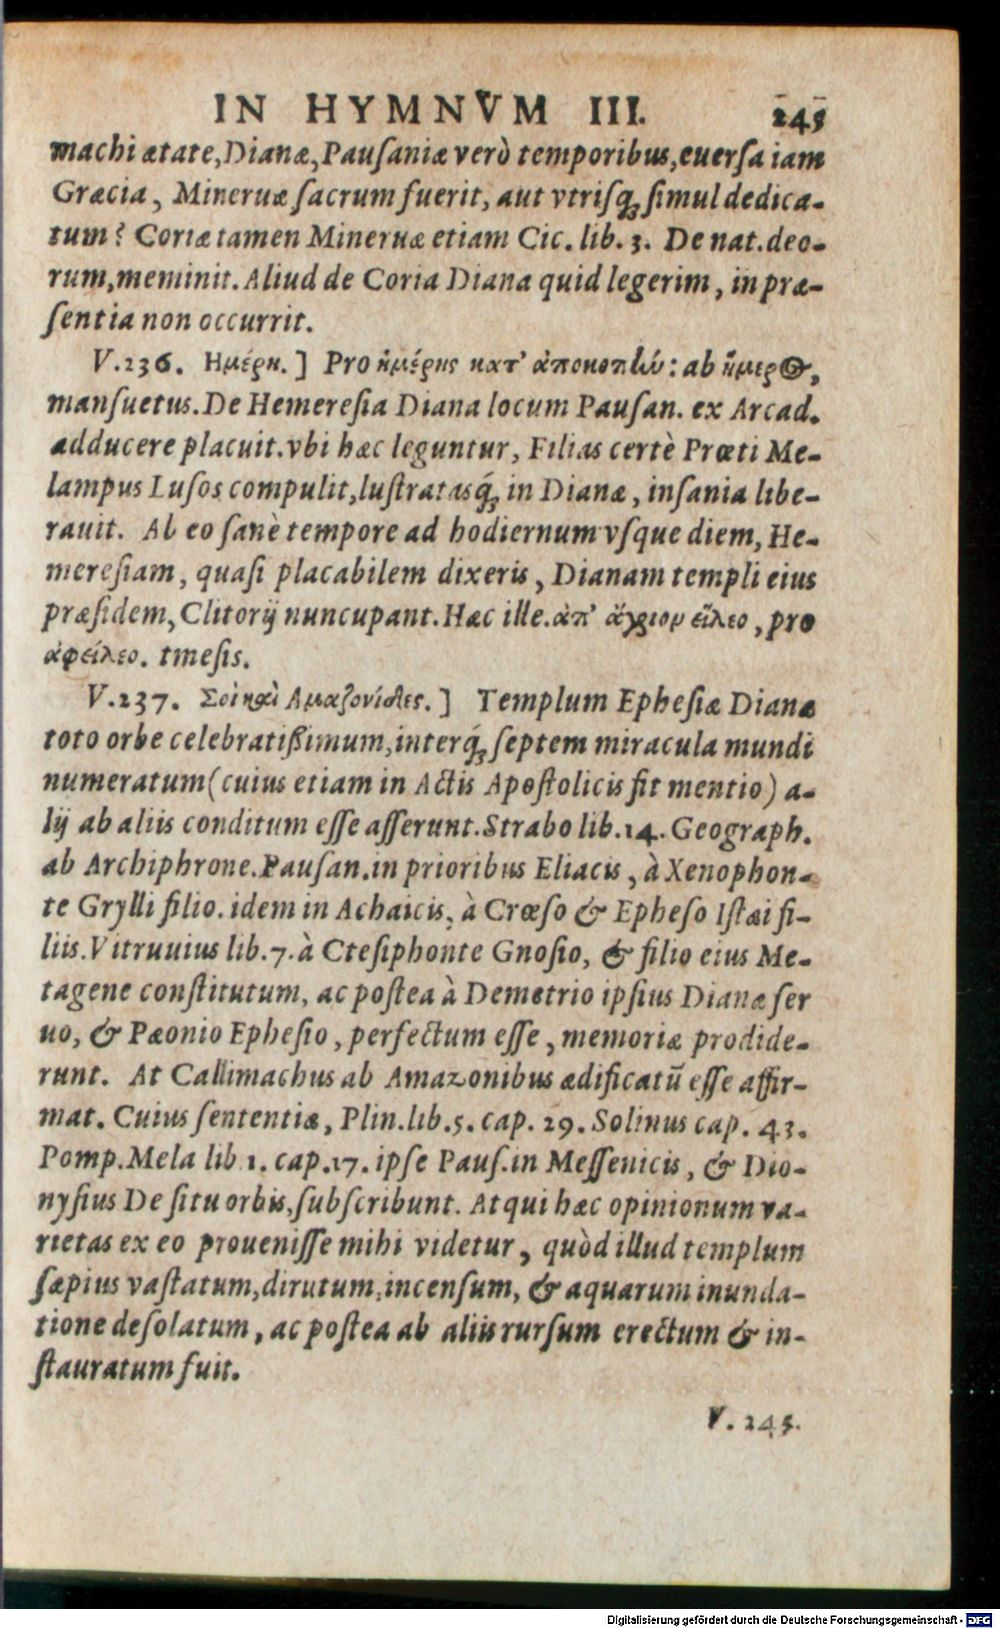 IN HYMNVM III. 245
machi ætate, Dianæ, Pausaniæ verò temporibus, euersa iam
Græcia, Mineruæ sacrum fuerit, aut vtrisq; simul dedica-
tum? Coriæ tamen Mineruæ etiam Cic. lib. 3. De nat. deo-
rum, meminit. Aliud de Coria Diana quid legerim, in præ-
sentia non occurrit.
V. 236. Ημέρη.] Pro ἡμέρης κατ' ἀποκοπὼ: ab ἥμερος,
mansuetus. De Hemeresia Diana locum Pausan. ex Arcad.
adducere placuit. vbi hæc leguntur, Filias certè Prœti Me-
lampus Lusos compulit, lustratasq́; in Dianæ, insania libe-
rauit. Ab eo sanè tempore ad hodiernum vsque diem, He-
meresiam, quasi placabilem dixeris, Dianam templi eius
præsidem, Clitorij nuncupant. Hæc ille. ἀπ' ἄγριον εἵλεο, pro
ἀφείλεο. tmesis.
V. 237. Σοὶ καὶ Αμαζονίδες.] Templum Ephesiæ Dianæ
toto orbe celebratissimum, interq́; septem miracula mundi
numeratum (cuius etiam in Actis Apostolicis fit mentio) a-
lij ab aliis conditum esse asserunt. Strabo lib. 14. Geograph.
ab Archiphrone. Pausan. in prioribus Eliacis, à Xenophon-
te Grylli filio. idem in Achaicis, à Crœso & Epheso Istæi fi-
liis. Vitruuius lib. 7. à Ctesiphonte Gnosio, & filio eius Me-
tagene constitutum, ac postea à Demetrio ipsius Dianæ ser
uo, & Pæonio Ephesio, perfectum esse, memoriæ prodide-
runt. At Callimachus ab Amazonibus ædificatū esse affir-
mat. Cuius sententiæ, Plin. lib. 5. cap. 29. Solinus cap. 43.
Pomp. Mela lib 1. cap. 17. ipse Paus. in Messenicis, & Dio-
nysius De situ orbis, subscribunt. Atqui hæc opinionum va-
rietas ex eo prouenisse mihi videtur, quòd illud templum
sæpius vastatum, dirutum, incensum, & aquarum inunda-
tione desolatum, ac postea ab aliis rursum erectum & in-
stauratum fuit.
V. 245.
Digitalisierung gefördert durch die Deutsche Forschungsgemeinschaft - DFG